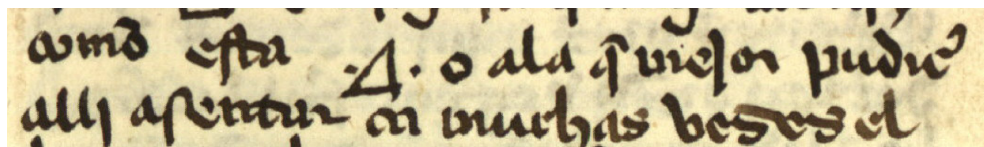 como esta .4. o ala q̃ mejor pudier̉
alli asentar ca muchas vezes el